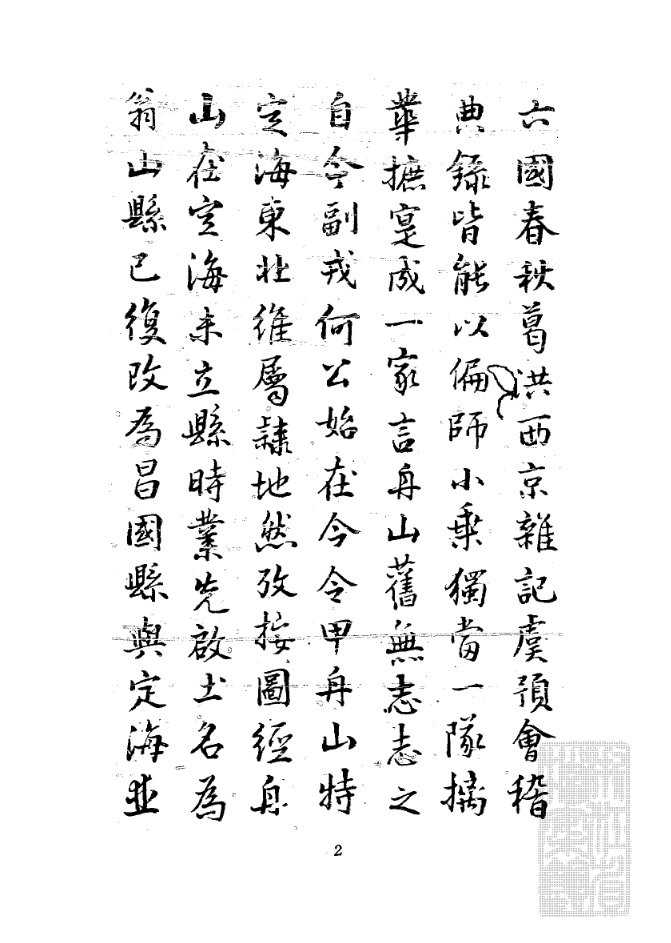 六國春秋葛洪西京雜記虞預會稽
典錄皆能以偏師小乘獨當一隊摛
華摭寔成一家言舟山舊無志志之
自今副戎何公始在今令甲舟山特
定海東北維屬隸地然攷按圖經舟
山在定海未立縣時業先啟土名為
翁山縣已復改為昌國縣與定海並
2